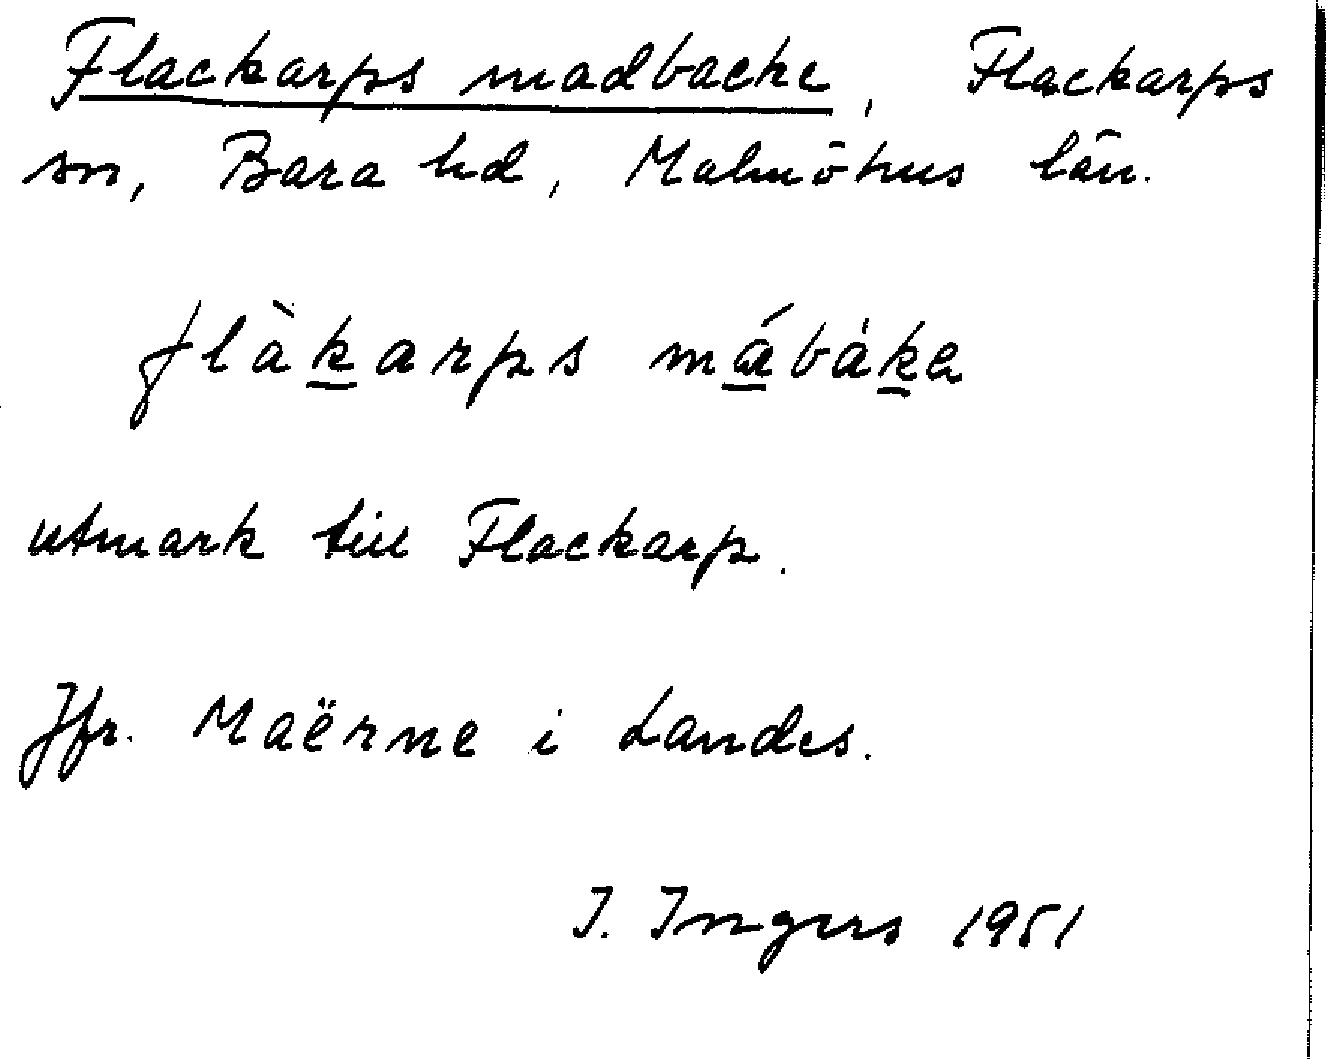 Flackarps madbacke, Flackarps
sn, Bara hd, Malmöhus län.
flàkarps mábàka
utmark till Flackarp.
Jfr. Maërne i Landes.
I. Ingers 1951